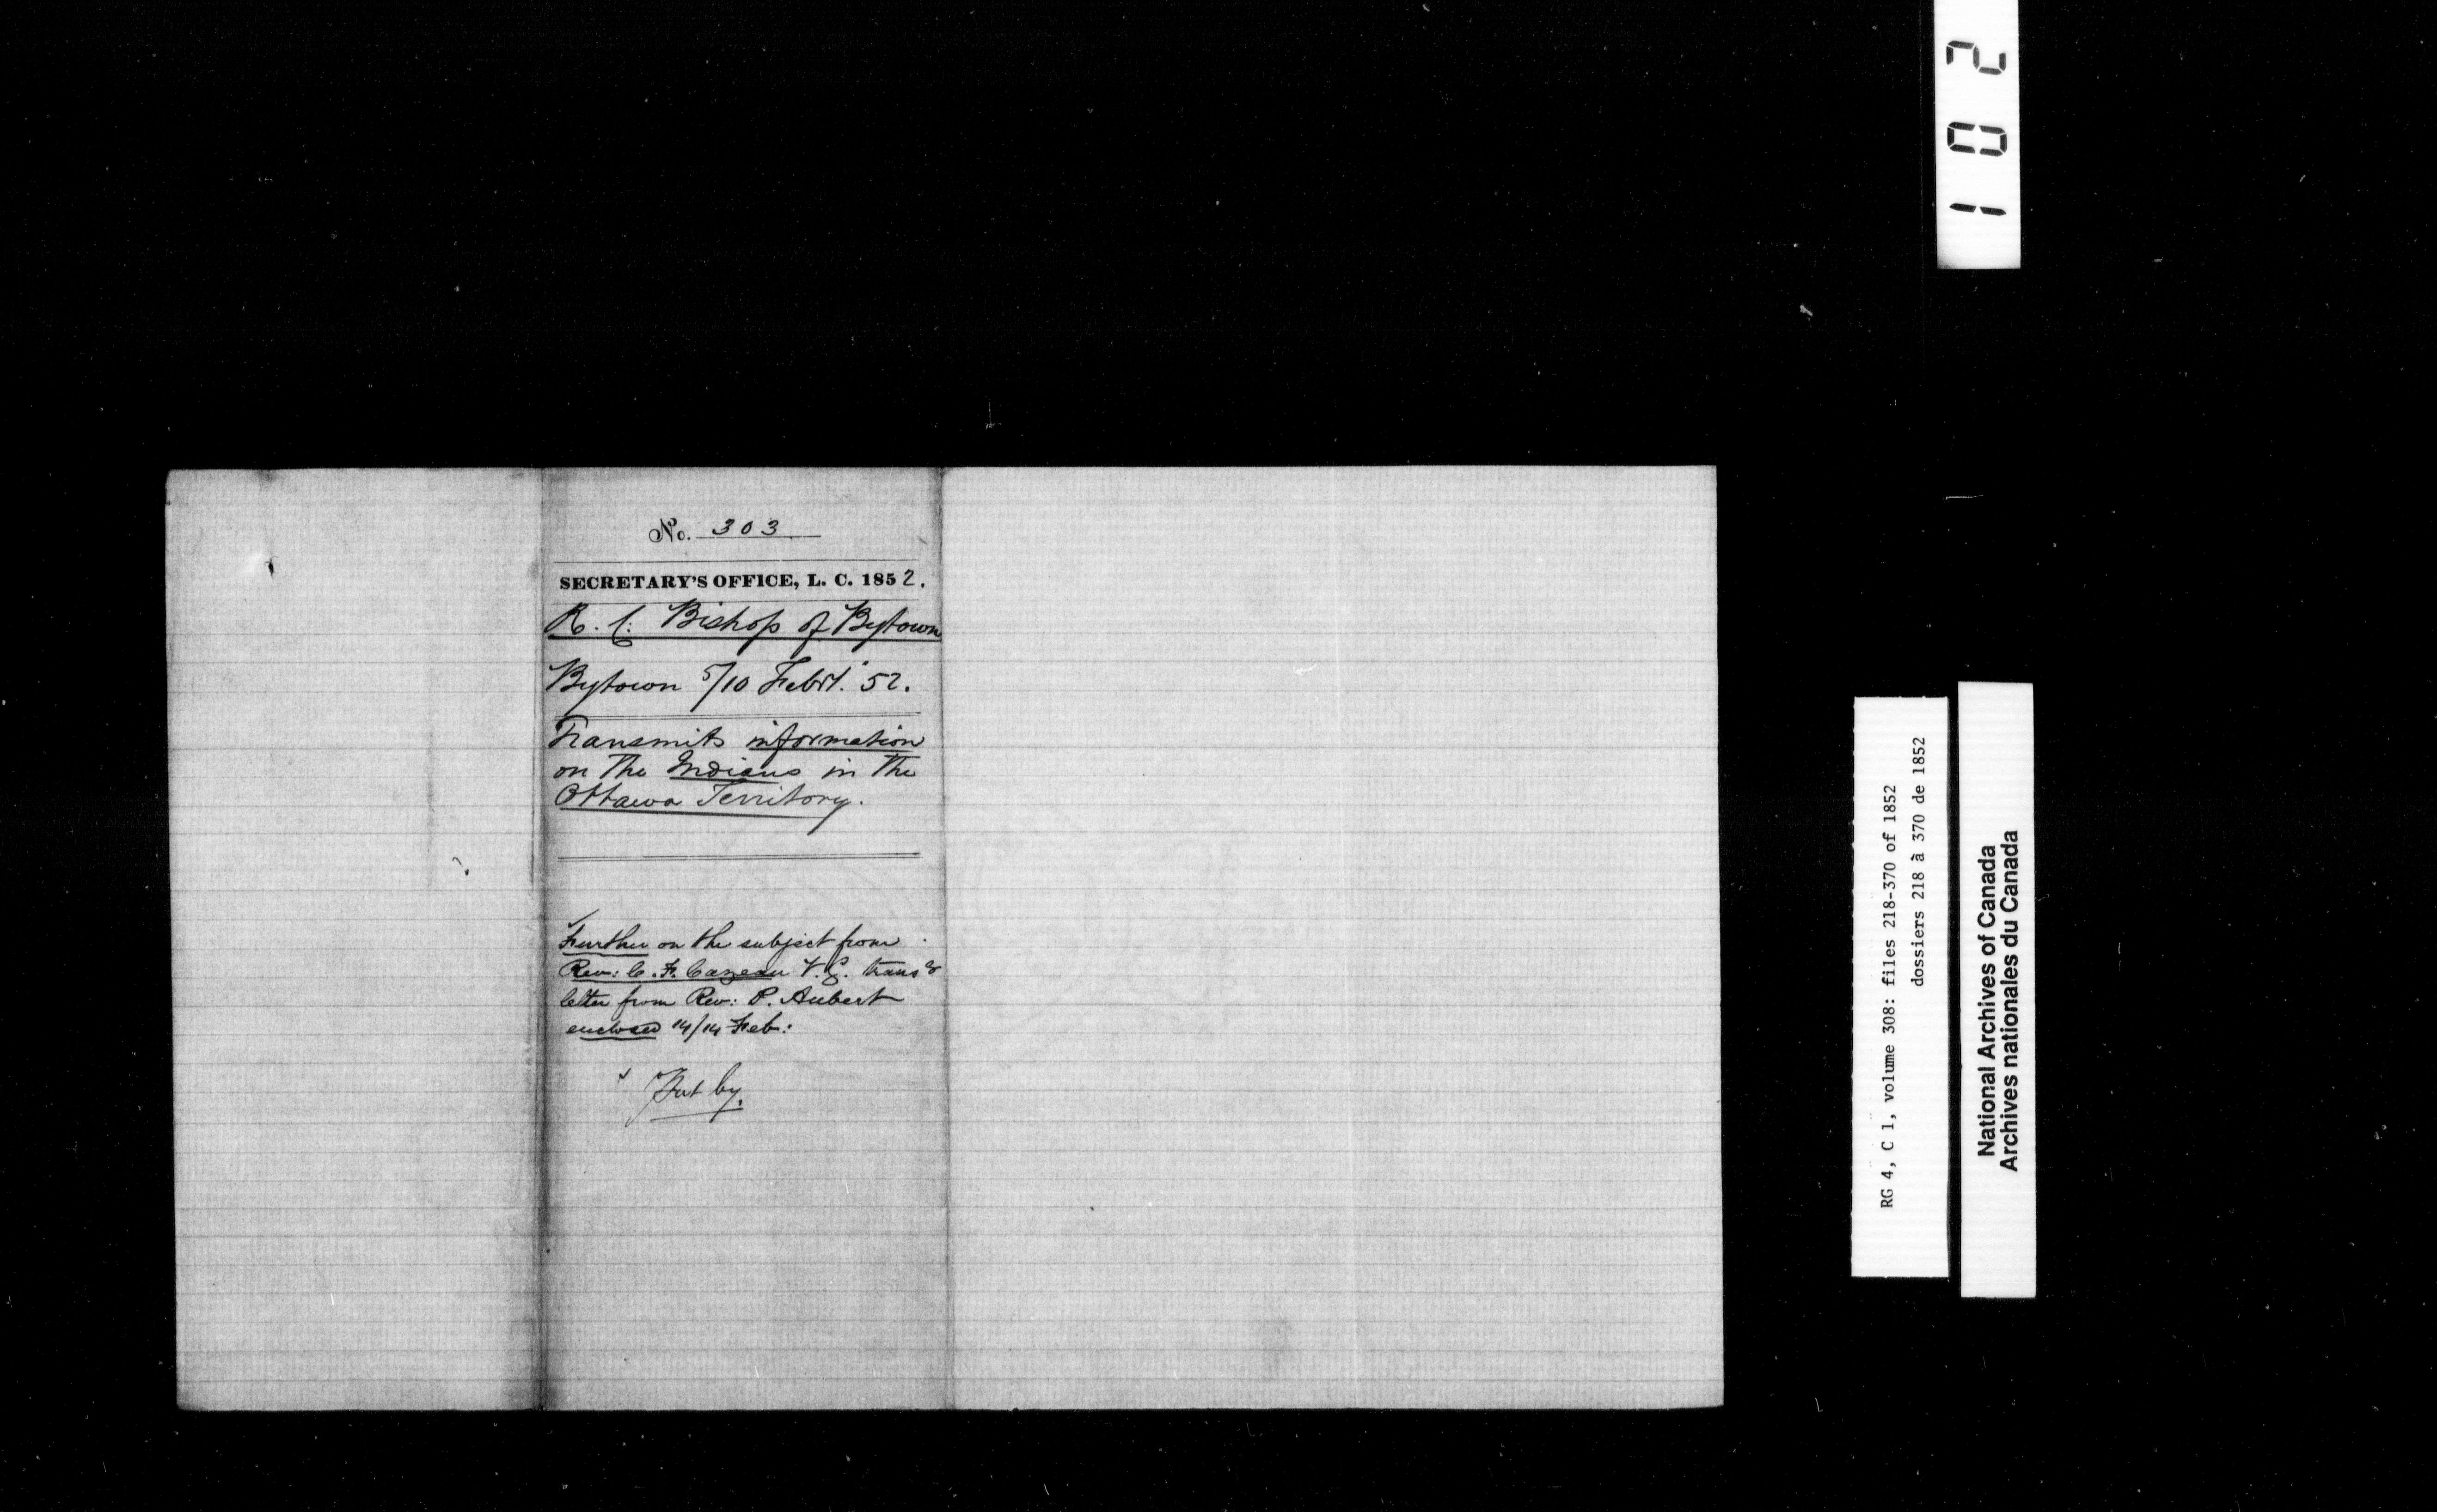 No. 303
SECRETARY'S OFFICE, L. C. 1852.
R. C. Bishop of Bytown
Bytown 5/10 Feby. 52.
Transmits information
on the Indians in the
Ottawa Territory.
Further on the subject from
Rev: C. F. Cazeau V. G. transg
letter from Rev: P. Aubert
enclosed 14/14 Feb:
Put by.
102
RG 4, C 1, volume 308: files 218-370 of 1852
dossiers 218 à 370 de 1852
National Archives of Canada
Archives nationales du Canada